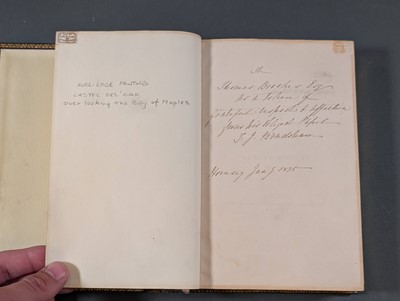 FORE-EDGE PAINTING
CASTEL DEL'OVO
overlooking the Bay of Naples
To
Thomas Esq
as a Token of
grateful respect & affection
from his obliged Pupil
T. J. Bradshaw
Jany 1835